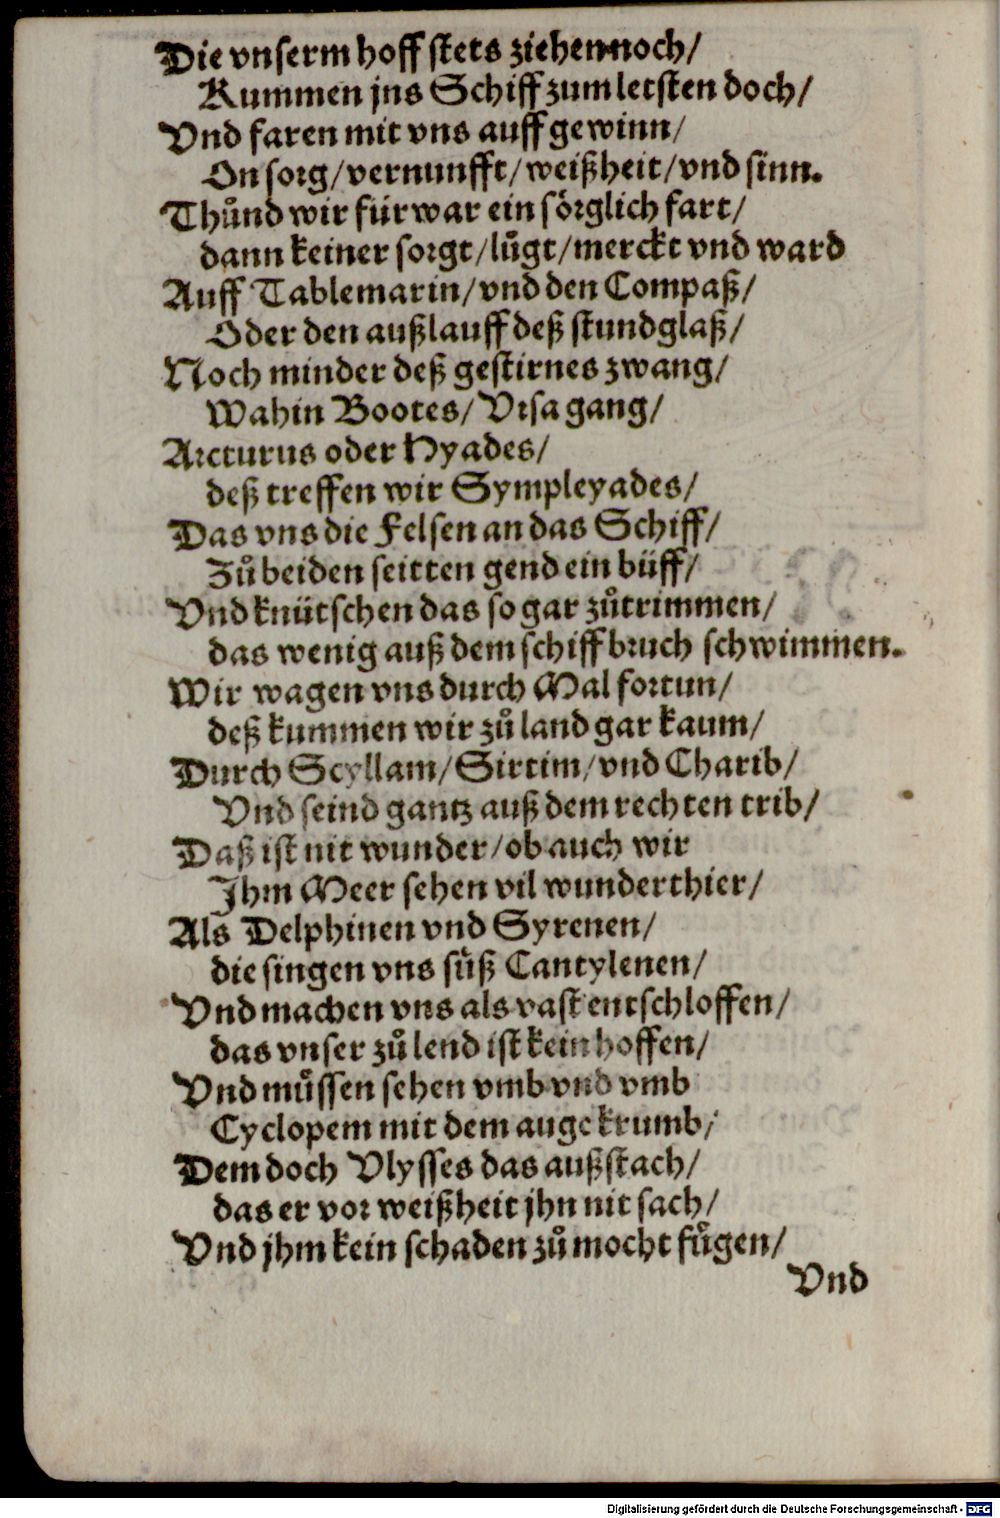 Die vnserm hoff stets ziehen noch/
Kummen jns Schiff zum letsten doch/
Vnd faren mit vns auff gewinn/
On sorg/vernunfft/weißheit/vnd sinn.
Thůnd wir fürwar ein sörglich fart/
dann keiner sorgt/lůgt/merckt vnd ward
Auff Tablemarin/vnd den Compaß/
Oder den außlauff deß stundglaß/
Noch minder deß gestirnes zwang/
Wahin Bootes/Vrsa gang/
Arcturus oder Hyades/
deß treffen wir Sympleyades/
Das vns die Felsen an das Schiff/
Zů beiden seitten gend ein büff/
Vnd knütschen das so gar zůtrimmen/
das wenig auß dem schiffbruch schwimmen.
Wir wagen vns durch Mal fortun/
deß kummen wir zů land gar kaum/
Durch Scyllam/Sirtim/vnd Charib/
Vnd seind gantz auß dem rechten trib/
Daß ist nit wunder/ob auch wir
Jhm Meer sehen vil wunderthier/
Als Delphinen vnd Syrenen/
die singen vns süß Cantylenen/
Vnd machen vns als vast entschloffen/
das vnser zů lend ist kein hoffen/
Vnd müssen sehen vmb vnd vmb
Cyclopem mit dem auge krumb/
Dem doch Vlysses das außstach/
das er vor weißheit jhn nit sach/
Vnd jhm kein schaden zů mocht fügen/
Vnd
Digitalisierung gefördert durch die Deutsche Forschungsgemeinschaft - DFG